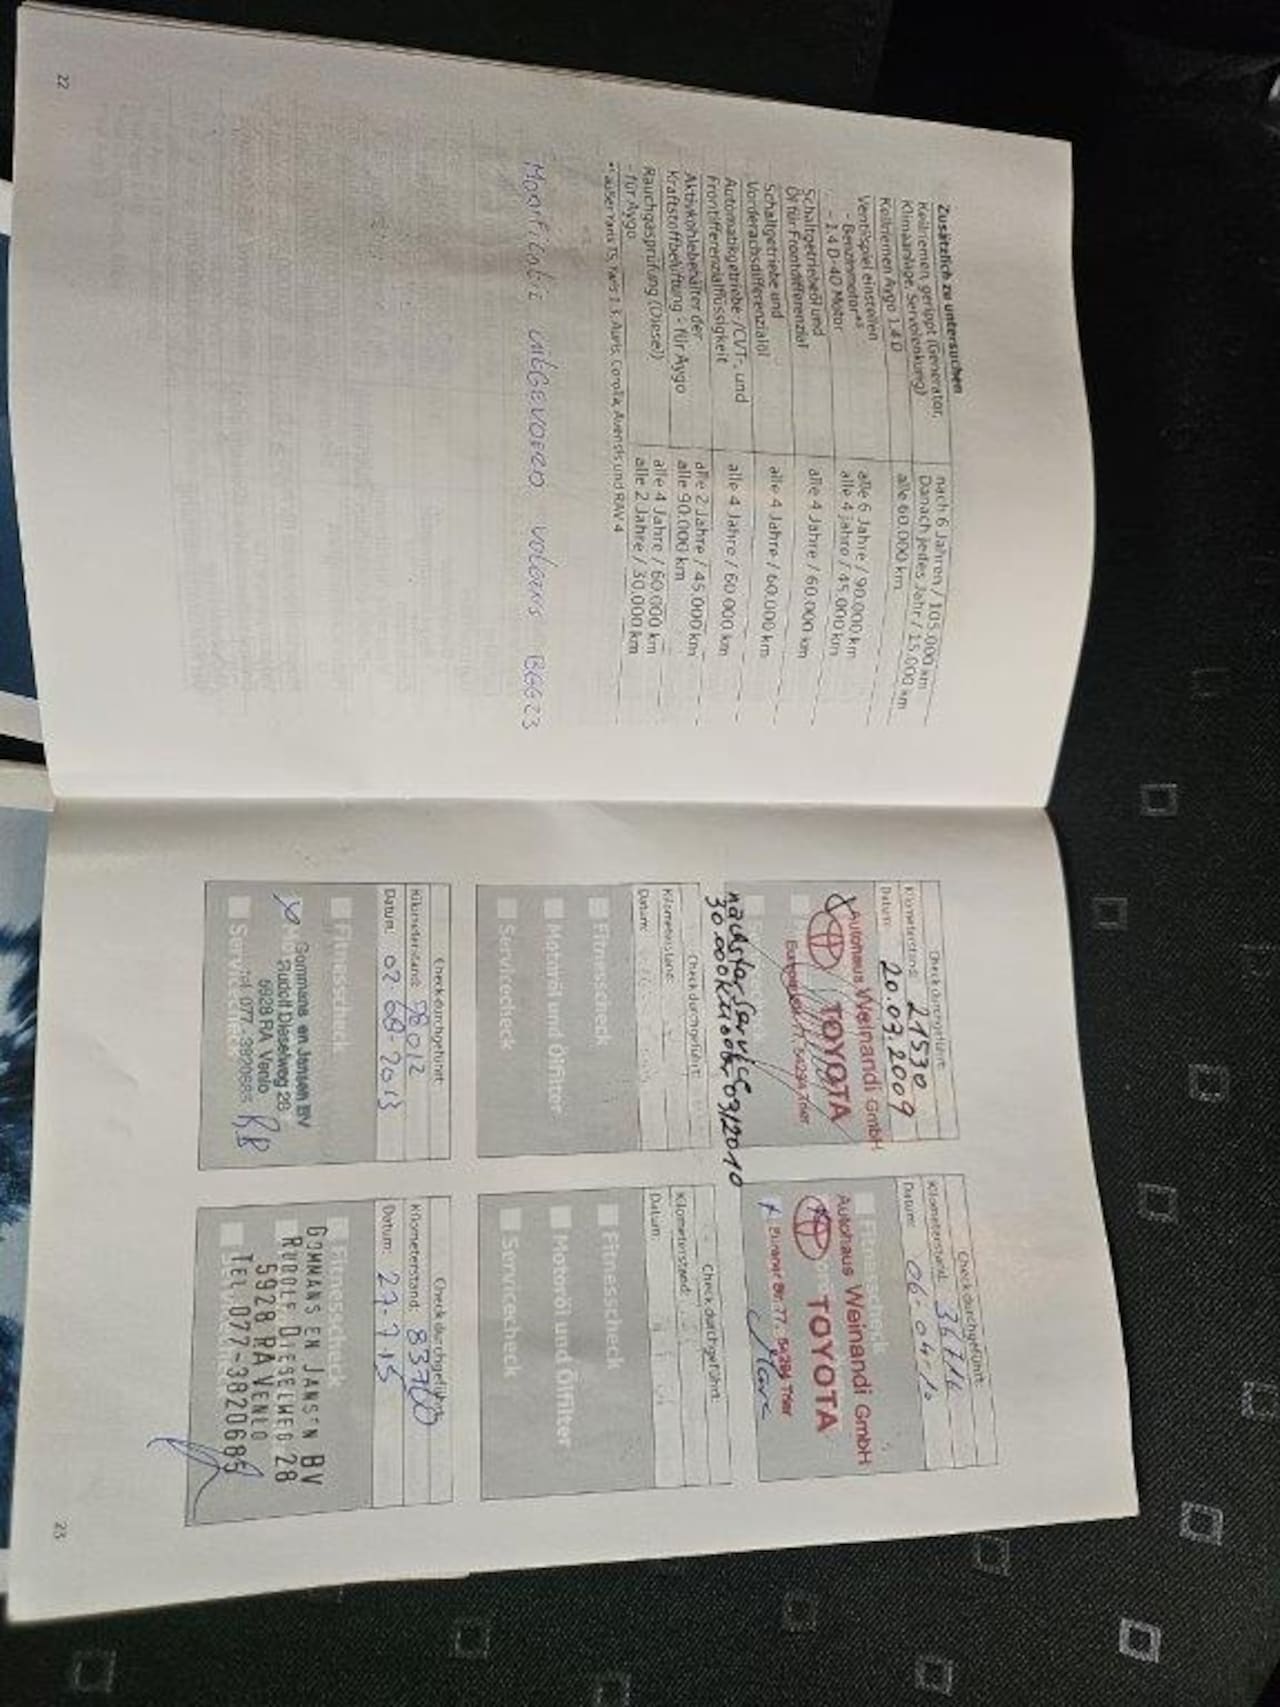 Zusätzlich zu untersuchen
Keilriemen, gerippt (Generator, nach 6 Jahren / 105.000 km
Klimaanlage, Servolenkung) Danach jedes Jahr / 15.000 km
Keilriemen Aygo 1.4 D alle 60.000 km
Ventilspiel einstellen
- Benzinmotor*⁵ alle 6 Jahre / 90.000 km
- 1.4 D-4D Motor alle 4 Jahre / 45.000 km
Schaltgetriebeöl und
Öl für Frontdifferenzial alle 4 Jahre / 60.000 km
Schaltgetriebe und
Vorderachsdifferenzialöl alle 4 Jahre / 60.000 km
Automatikgetriebe /CVT-, und
Frontdifferenzialflüssigkeit alle 4 Jahre / 60.000 km
Aktivkohlebehälter der alle 2 Jahre / 45.000 km
Kraftstoffbelüftung - für Aygo alle 90.000 km
Rauchgasprüfung (Diesel) alle 4 Jahre / 60.000 km
- für Aygo alle 2 Jahre / 30.000 km
außer Yaris TS, Yaris 1.3, Auris, Corolla, Avensis und RAV 4
UITGEVOERD VOLGENS
22
Check durchgeführt:
Kilometerstand: 21530
Datum: 20.03.2009
Autohaus Weinandi GmbH
TOYOTA
77, 54294 Trier
nächster Service
30.000 km oder 03/2010
Check durchgeführt:
Kilometerstand:
Datum: 06-04-10
Fitnesscheck
Autohaus Weinandi GmbH
TOYOTA
Eurener Str. 77, 54294 Trier
Check durchgeführt:
Kilometerstand:
Datum:
Fitnesscheck
Motoröl und Ölfilter
Servicecheck
Check durchgeführt:
Kilometerstand:
Datum:
Fitnesscheck
Motoröl und Ölfilter
Servicecheck
Check durchgeführt:
Kilometerstand: 78012
Datum: 02-08-2013
Fitnesscheck
Gommans en Jansen BV
Rudolf Dieselweg 28
5928 RA Venlo
Tel. 077-3820685
Servicecheck
Check durchgeführt:
Kilometerstand: 83700
Datum: 27-7-15
Fitnesscheck
GOMMANS EN JANSEN BV
RUDOLF DIESELWEG 28
5928 RA VENLO
TEL. 077-3820685
23